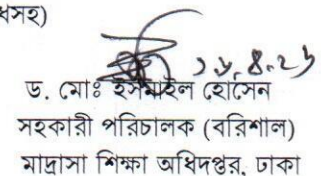 ধসহ)
২৮.৪.২৬
ড. মোঃ ইসমাইল হোসেন
সহকারী পরিচালক (বরিশাল)
মাদ্রাসা শিক্ষা অধিদপ্তর, ঢাকা